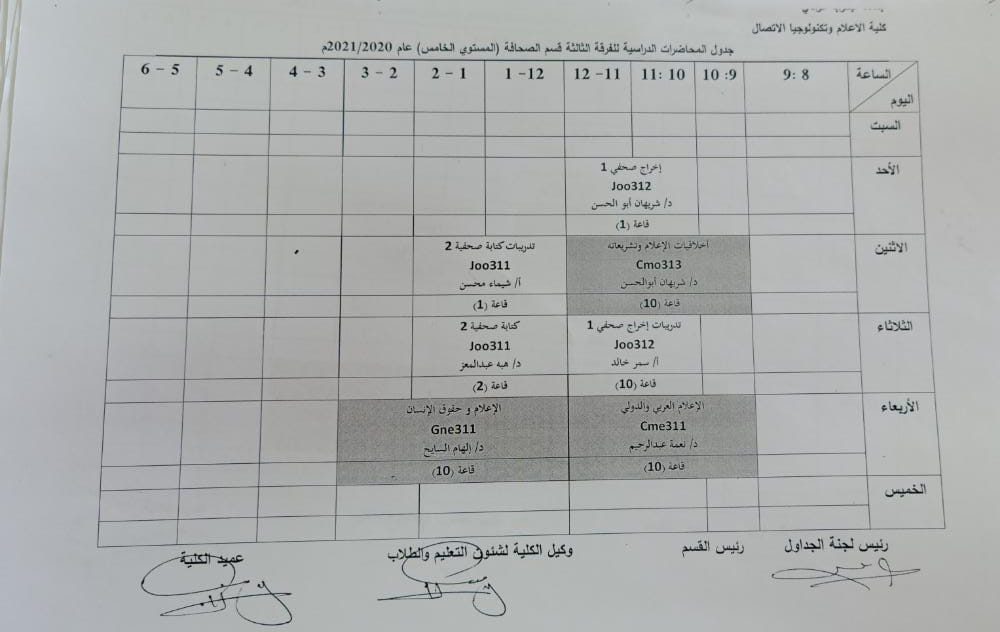 كلية الاعلام وتكنولوجيا الاتصال
جدول المحاضرات الدراسية للفرقة الثالثة قسم الصحافة (المستوي الخامس) عام 2021/2020م
الساعة
اليوم
8 :9
9: 10
10 :11
11- 12
12- 1
1 - 2
2 - 3
3 - 4
4 - 5
5 - 6
السبت
الأحد
إخراج صحفي 1
Joo312
د/ شريهان أبو الحسن
قاعة (1)
الاثنين
أخلاقيات الإعلام وتشريعاته
Cmo313
د/ شريهان أبوالحسن
قاعة (10)
تدريبات كتابة صحفية 2
Joo311
أ/ شيماء محسن
قاعة (1)
الثلاثاء
تدريبات إخراج صحفي 1
Joo312
أ/ سمر خالد
قاعة (10)
كتابة صحفية 2
Joo311
د/ هبه عبدالمعز
قاعة (2)
الأربعاء
الإعلام العربي والدولي
Cme311
د/ نعمة عبدالرحيم
قاعة (10)
الإعلام و حقوق الإنسان
Gne311
د/ إلهام السايح
قاعة (10)
الخميس
رئيس لجنة الجداول
رئيس القسم
وكيل الكلية لشئون التعليم والطلاب
عميد الكلية